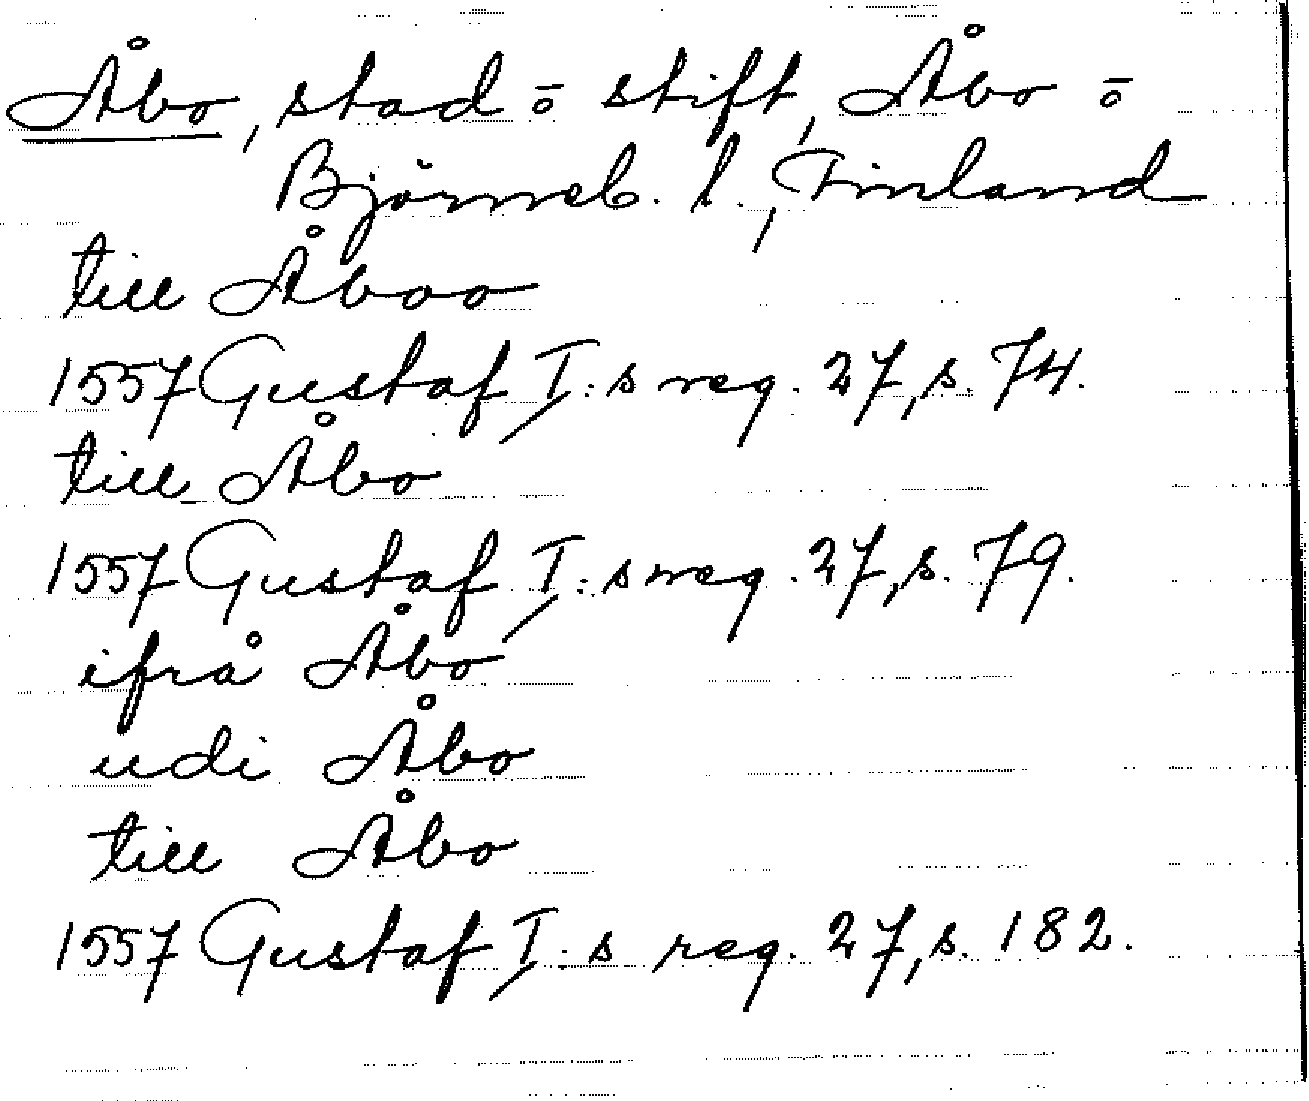 Åbo, stad o̅ stift, Åbo o̅
Björneb. l., Finland
till Åboo
1557 Gustaf I:s reg. 27, s. 74.
till Åbo
1557 Gustaf I:s reg. 27, s. 79.
ifrå Åbo
udi Åbo
till Åbo
1557 Gustaf I:s reg. 27, s. 182.